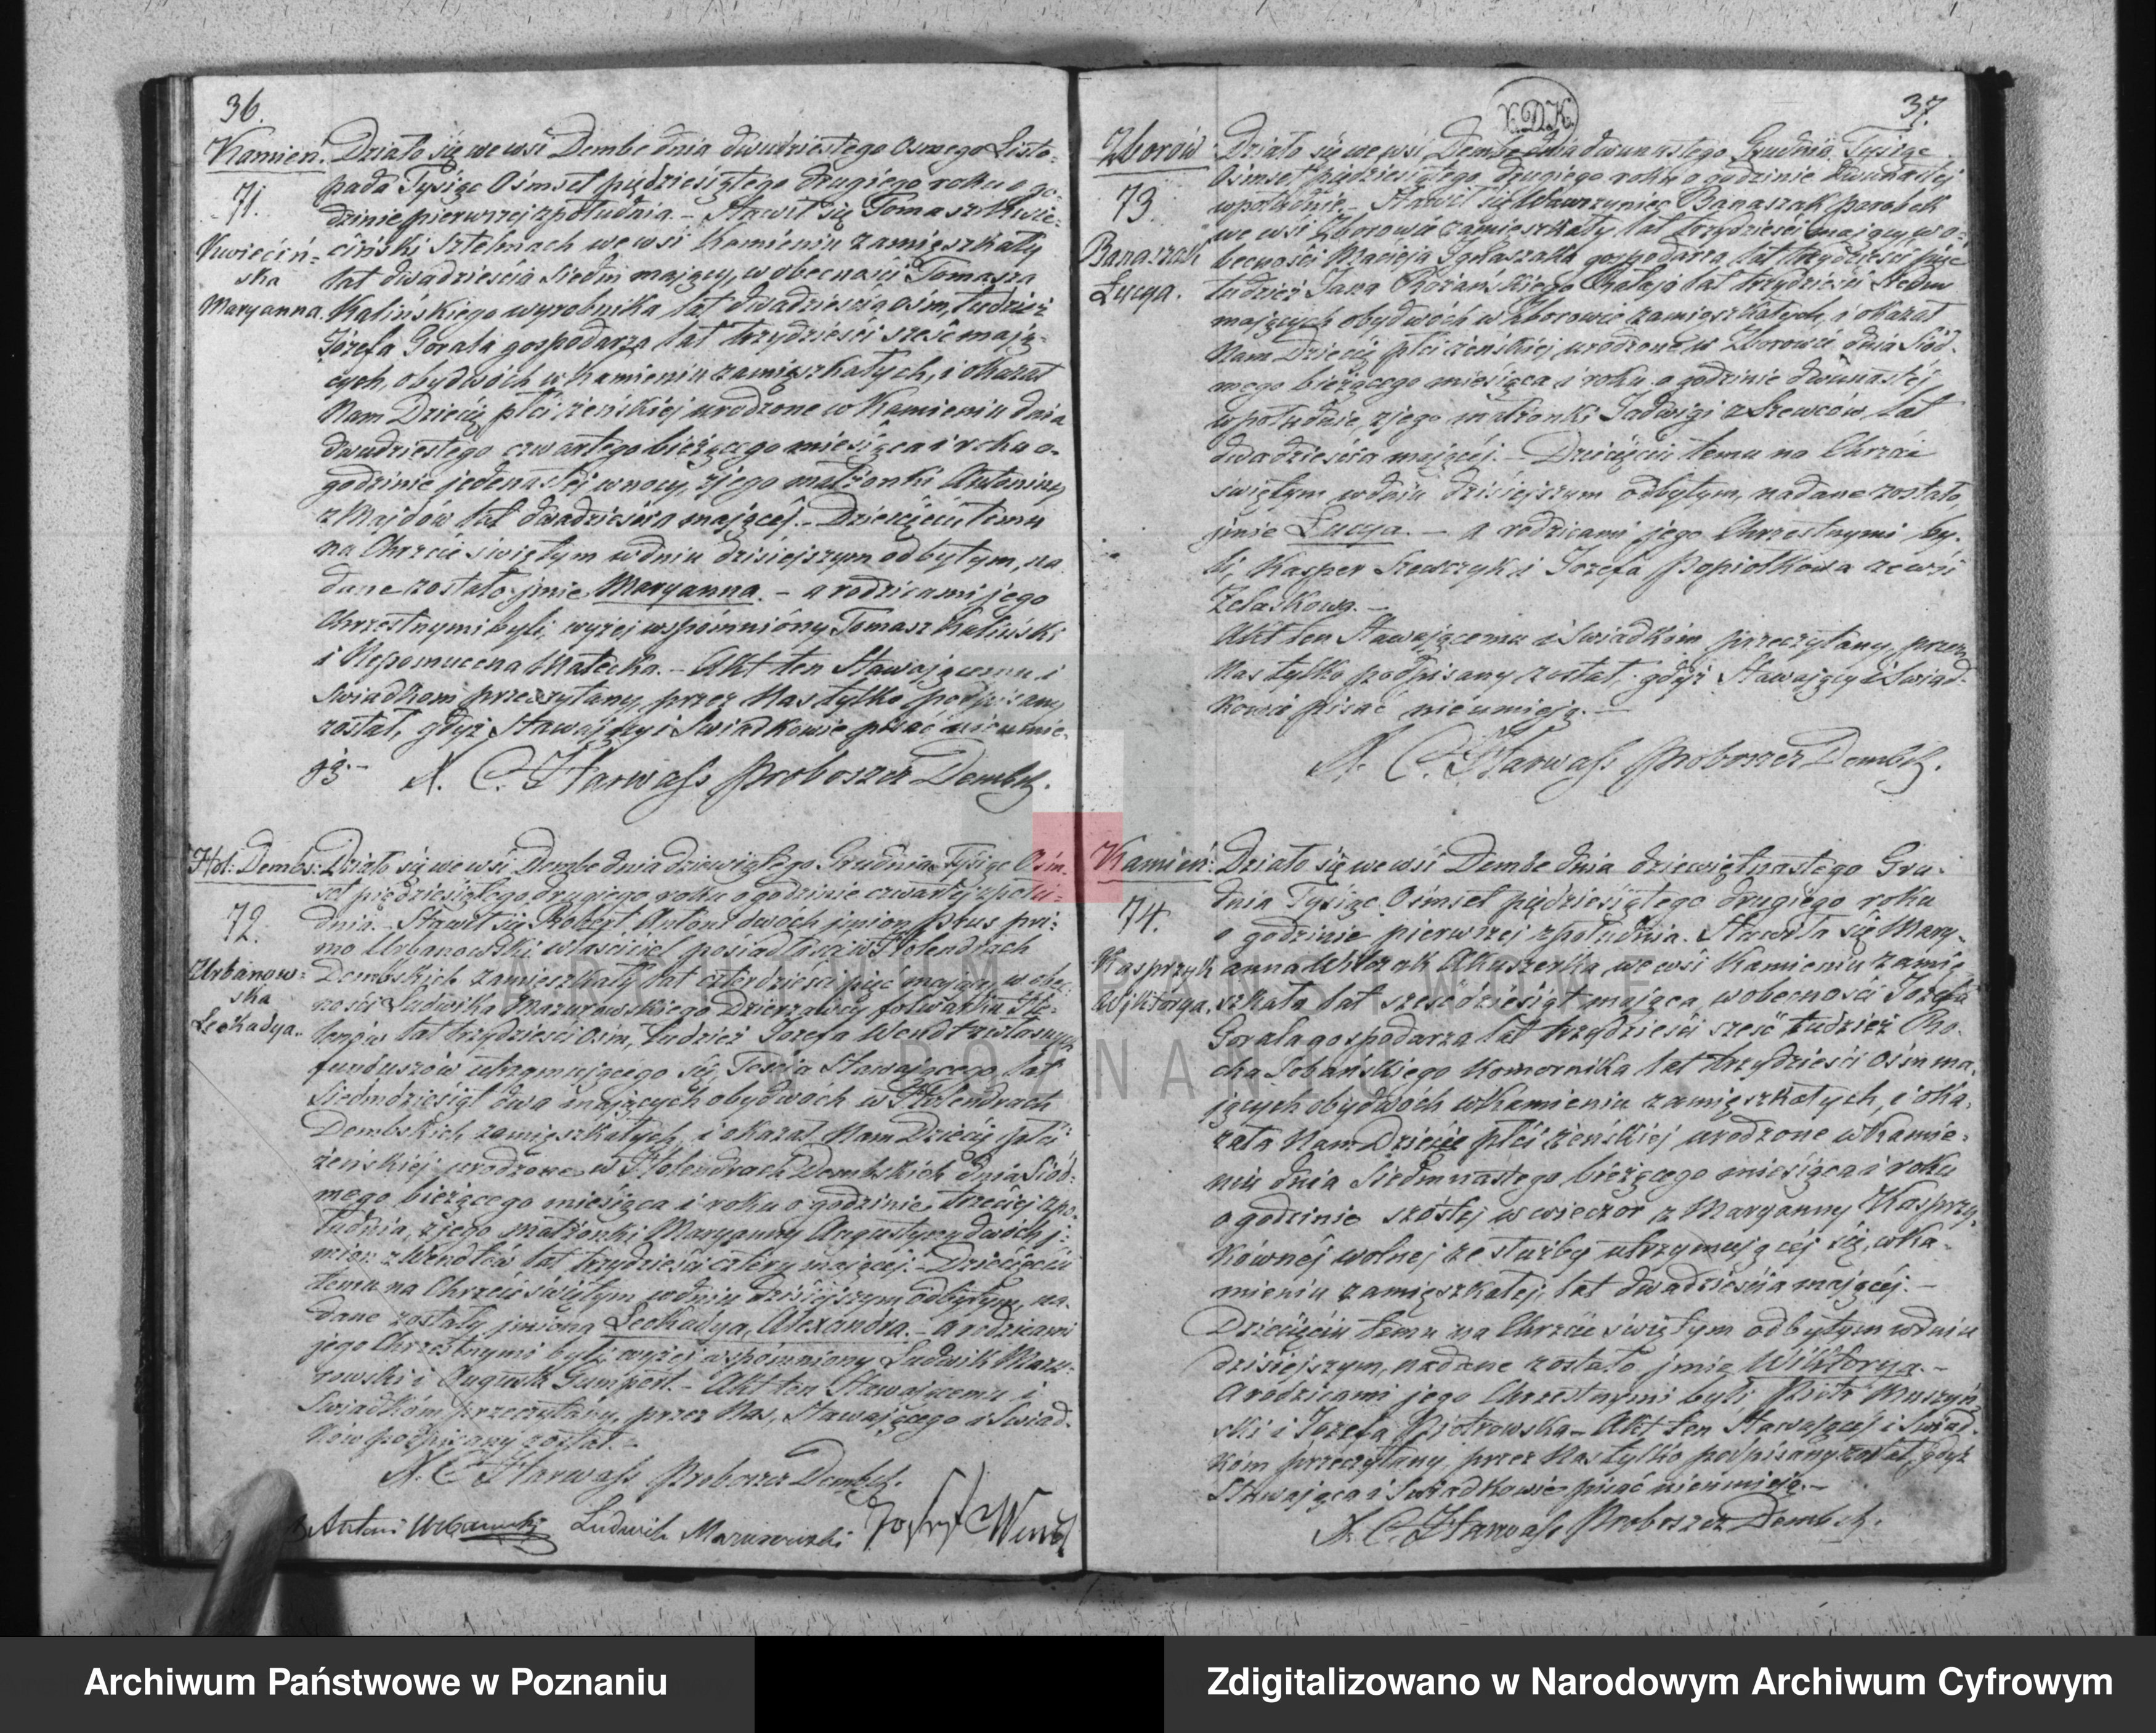 36.
Kamien. Działo się we wsi Dembe dnia dwudziestego osmego Listo-
pada Tysiąc Osimset pięćdziesiątego drugiego roku o go-
71. dzinie pierwszej z południa. – Stawił się Tomasz Kwie-
Kwieciń= ciński Sztelmach we wsi Kamieniu zamieszkały
ska lat dwadzieścia siedm mający, w obecności Tomasza
Maryanna. Kalińskiego wyrobnika lat dwadzieścia ośm, tudzież
Józefa Gorala gospodarza lat trzydzieści sześć mają-
cych, obydwóch w Kamieniu zamięszkałych, i okazał
Nam Dziecię płci żeńskiej urodzone w Kamieniu dnia
dwudziestego czwartego bieżącego miesiąca i roku o-
godzinie jedenastej w nocy, z jego małżonki Antoniny
z Majdów lat dwadzieścia mającej. – Dziecięciu temu
na Chrzcie świętym w dniu dzisiejszym odbytym, na
dane zostało jmie Maryanna. – a rodzicami jego
Chrzestnymi byli, wyżej wspomniony Tomasz Kaliński
i Nepomucena Małecka. – Akt ten Stawającemu i
Swiadkom przeczytany, przez Nas tylko podpisany
został, gdyż Stawający i Swiadkowie pisać nie umie-
ją. – X. C. Harwass Proboszcz Dembsk.
Hol: Dembs: Działo się we wsi Dembe dnia dziewiątego Grudnia Tysiąc Osim-
set pięćdziesiątego drugiego roku o godzinie czwartej z połu-
72. dnia. – Stawił się Robert Antoni dwoch jmion Prus pri-
mo Urbanowski właściciel posiadłości w Holendrach
Urbanow= Dembskich zamieszkały lat czterdzieści pięć mający, w obec-
ska ności Ludwika Mazurowskiego Dzierzawcy folwarku
Leokadya. lat trzydzieści ośm, tudzież Jozefa Wendt z własnych
funduszów utrzymującego się, Teścia Stawającego, lat
siedmdziesiąt dwa mających obydwóch w Holendrach
Dembskich zamięszkałych, i okazał Nam Dziecię płci
żeńskiej urodzone w Holendrach Dembskich dnia siód-
mego bieżącego miesiąca i roku o godzinie trzeciej z po-
łudnia, z jego małżonki Maryanny Augustyny dwóch j-
mion z Wendtów lat trzydzieści cztery mającej. – Dziecięciu
temu na Chrzcie świętym w dniu dzisiejszym odbytym, na-
dane zostały jmiona Leokadya, Alexandra. – a rodzicami
jego Chrzestnymi byli, wyżej wspomniony Ludwik Mazu-
rowski i Augusta. – Akt ten Stawającemu i
Swiadkóm przeczytany, przez Nas, Stawającego i Swiad-
ków podpisany został. –
X. C. Harwass Proboszcz Dembsk.
Antoni Urbanowski Ludwik Mazurowski Josef Wendt
37.
X.D.K.
Zborów Działo się we wsi Dembe dnia dwunastego Grudnia Tysiąc
Osimset pięćdziesiątego drugiego roku o godzinie dwunastej
73. w południe. – Stawił się Wawrzyniec Banaszak parobek
we wsi Zborowie zamieszkały lat trzydzieści mający, w o-
Banaszak becności Macieja Ignaszaka gospodarza lat trzydzieści pięć
Łucya. tudzież Jana Różańskiego Rataja lat trzydzieści siedm
mających obydwóch w Zborowie zamięszkałych, i okazał
Nam Dziecię płci żeńskiej urodzone w Zborowie dnia siód-
mego bieżącego miesiąca i roku o godzinie dwunastej
w południe, z jego małżonki Jadwigi z Szewców lat
dwadzieścia mającej. – Dziecięciu temu na Chrzcie
świętym w dniu dzisiejszym odbytym, nadane zostało,
jmie Łucya. – a rodzicami jego Chrzestnymi by-
li, Kasper Szewczyk i Jozefa Popiołkowa ze wsi
Żelaskowa. –
Akt ten Stawającemu i Swiadkóm przeczytany, przez
Nas tylko podpisany został, gdyż Stawający i Swiad-
kowie pisać nieumieją. –
X. C. Harwass Proboszcz Dembsk.
Kamień: Działo się we wsi Dembe dnia dziewiętnastego Gru-
dnia Tysiąc Osimset pięćdziesiątego drugiego roku
74. o godzinie pierwszej z południa. Stawiła się Mary-
Kasprzyk anna Witczak Akuszerka, we wsi Kamieniu zamie-
Wiktorya. szkała lat sześćdziesiąt mająca, w obecności Jozefa
Gorala gospodarza lat trzydzieści sześć tudzież Ro-
cha Sobańskiego Komornika lat trzydzieści ośm ma-
jących obydwóch w Kamieniu zamięszkałych, i oka-
zała Nam Dziecię płci żeńskiej urodzone w Kamie-
niu dnia siedmnastego bieżącego miesiąca i roku
o godzinie szóstej w wieczór z Maryanny Kasprzy-
kównej wolnej ze służby utrzymującej się, w Ka-
mieniu zamięszkałej, lat dwadzieścia mającej. –
Dziecięciu temu na Chrzcie świętym odbytym w dniu
dzisiejszym, nadane zostało jmie Wiktorya. –
A rodzicami jego Chrzestnymi byli Piotr Muszyń-
ski i Jozefa Piotrowska – Akt ten Stawającej i Swiad-
kóm przeczytany, przez Nas tylko podpisany został, gdyż
Stawająca i Swiadkowie pisać nieumieją. –
X. C. Harwass Proboszcz Dembsk.
ARCHIWUM PAŃSTWOWE
W POZNANIU
Archiwum Państwowe w Poznaniu
Zdigitalizowano w Narodowym Archiwum Cyfrowym